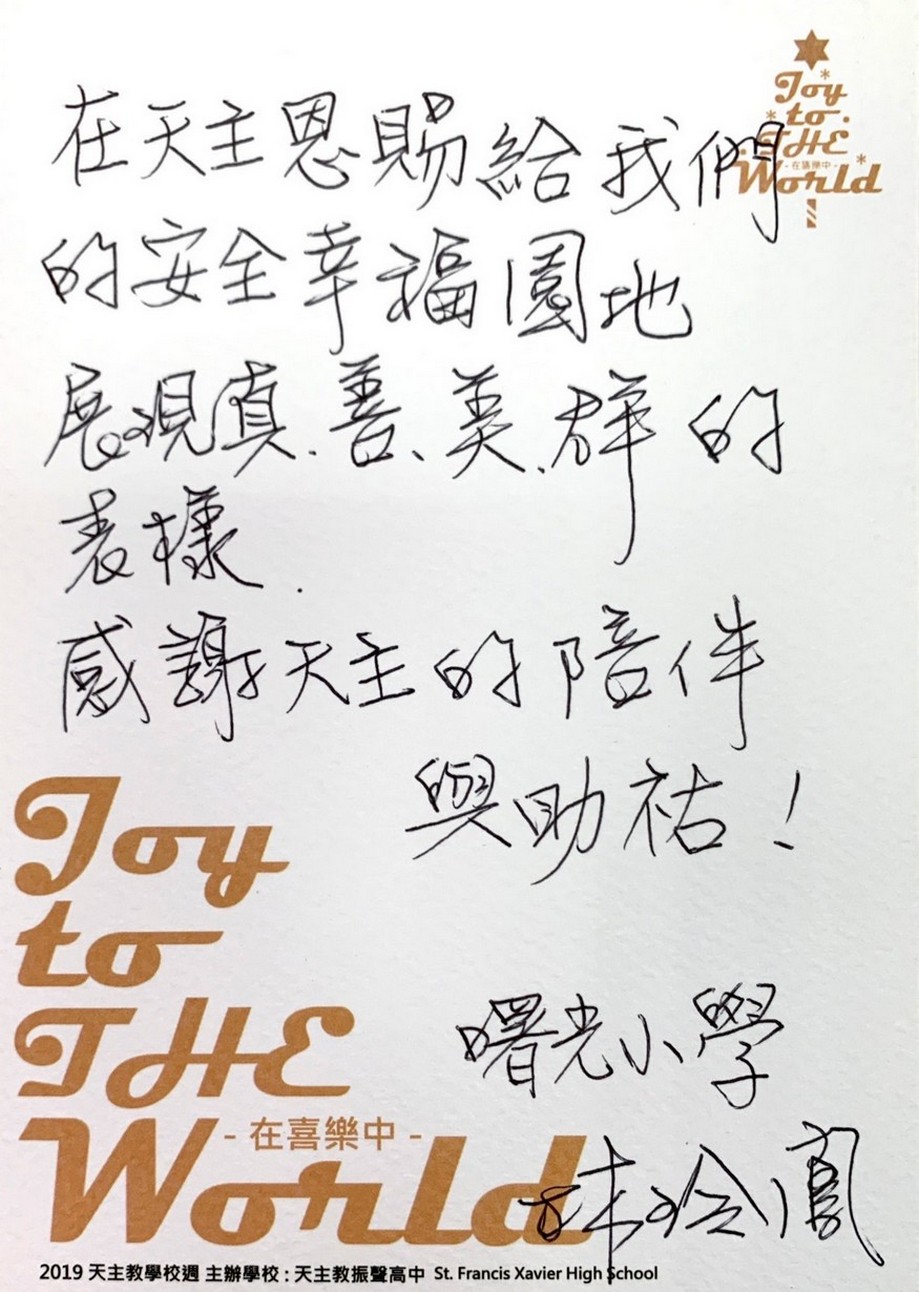 Joy
to
THE
- 在喜樂中 -
World
在天主恩賜給我們
的安全幸福園地
展現真、善、美、群的
表樣.
感謝天主的陪伴
與助祐!
曙光小學
玲鳳
Joy
to
THE
- 在喜樂中 -
World
2019 天主教學校週 主辦學校 : 天主教振聲高中 St. Francis Xavier High School